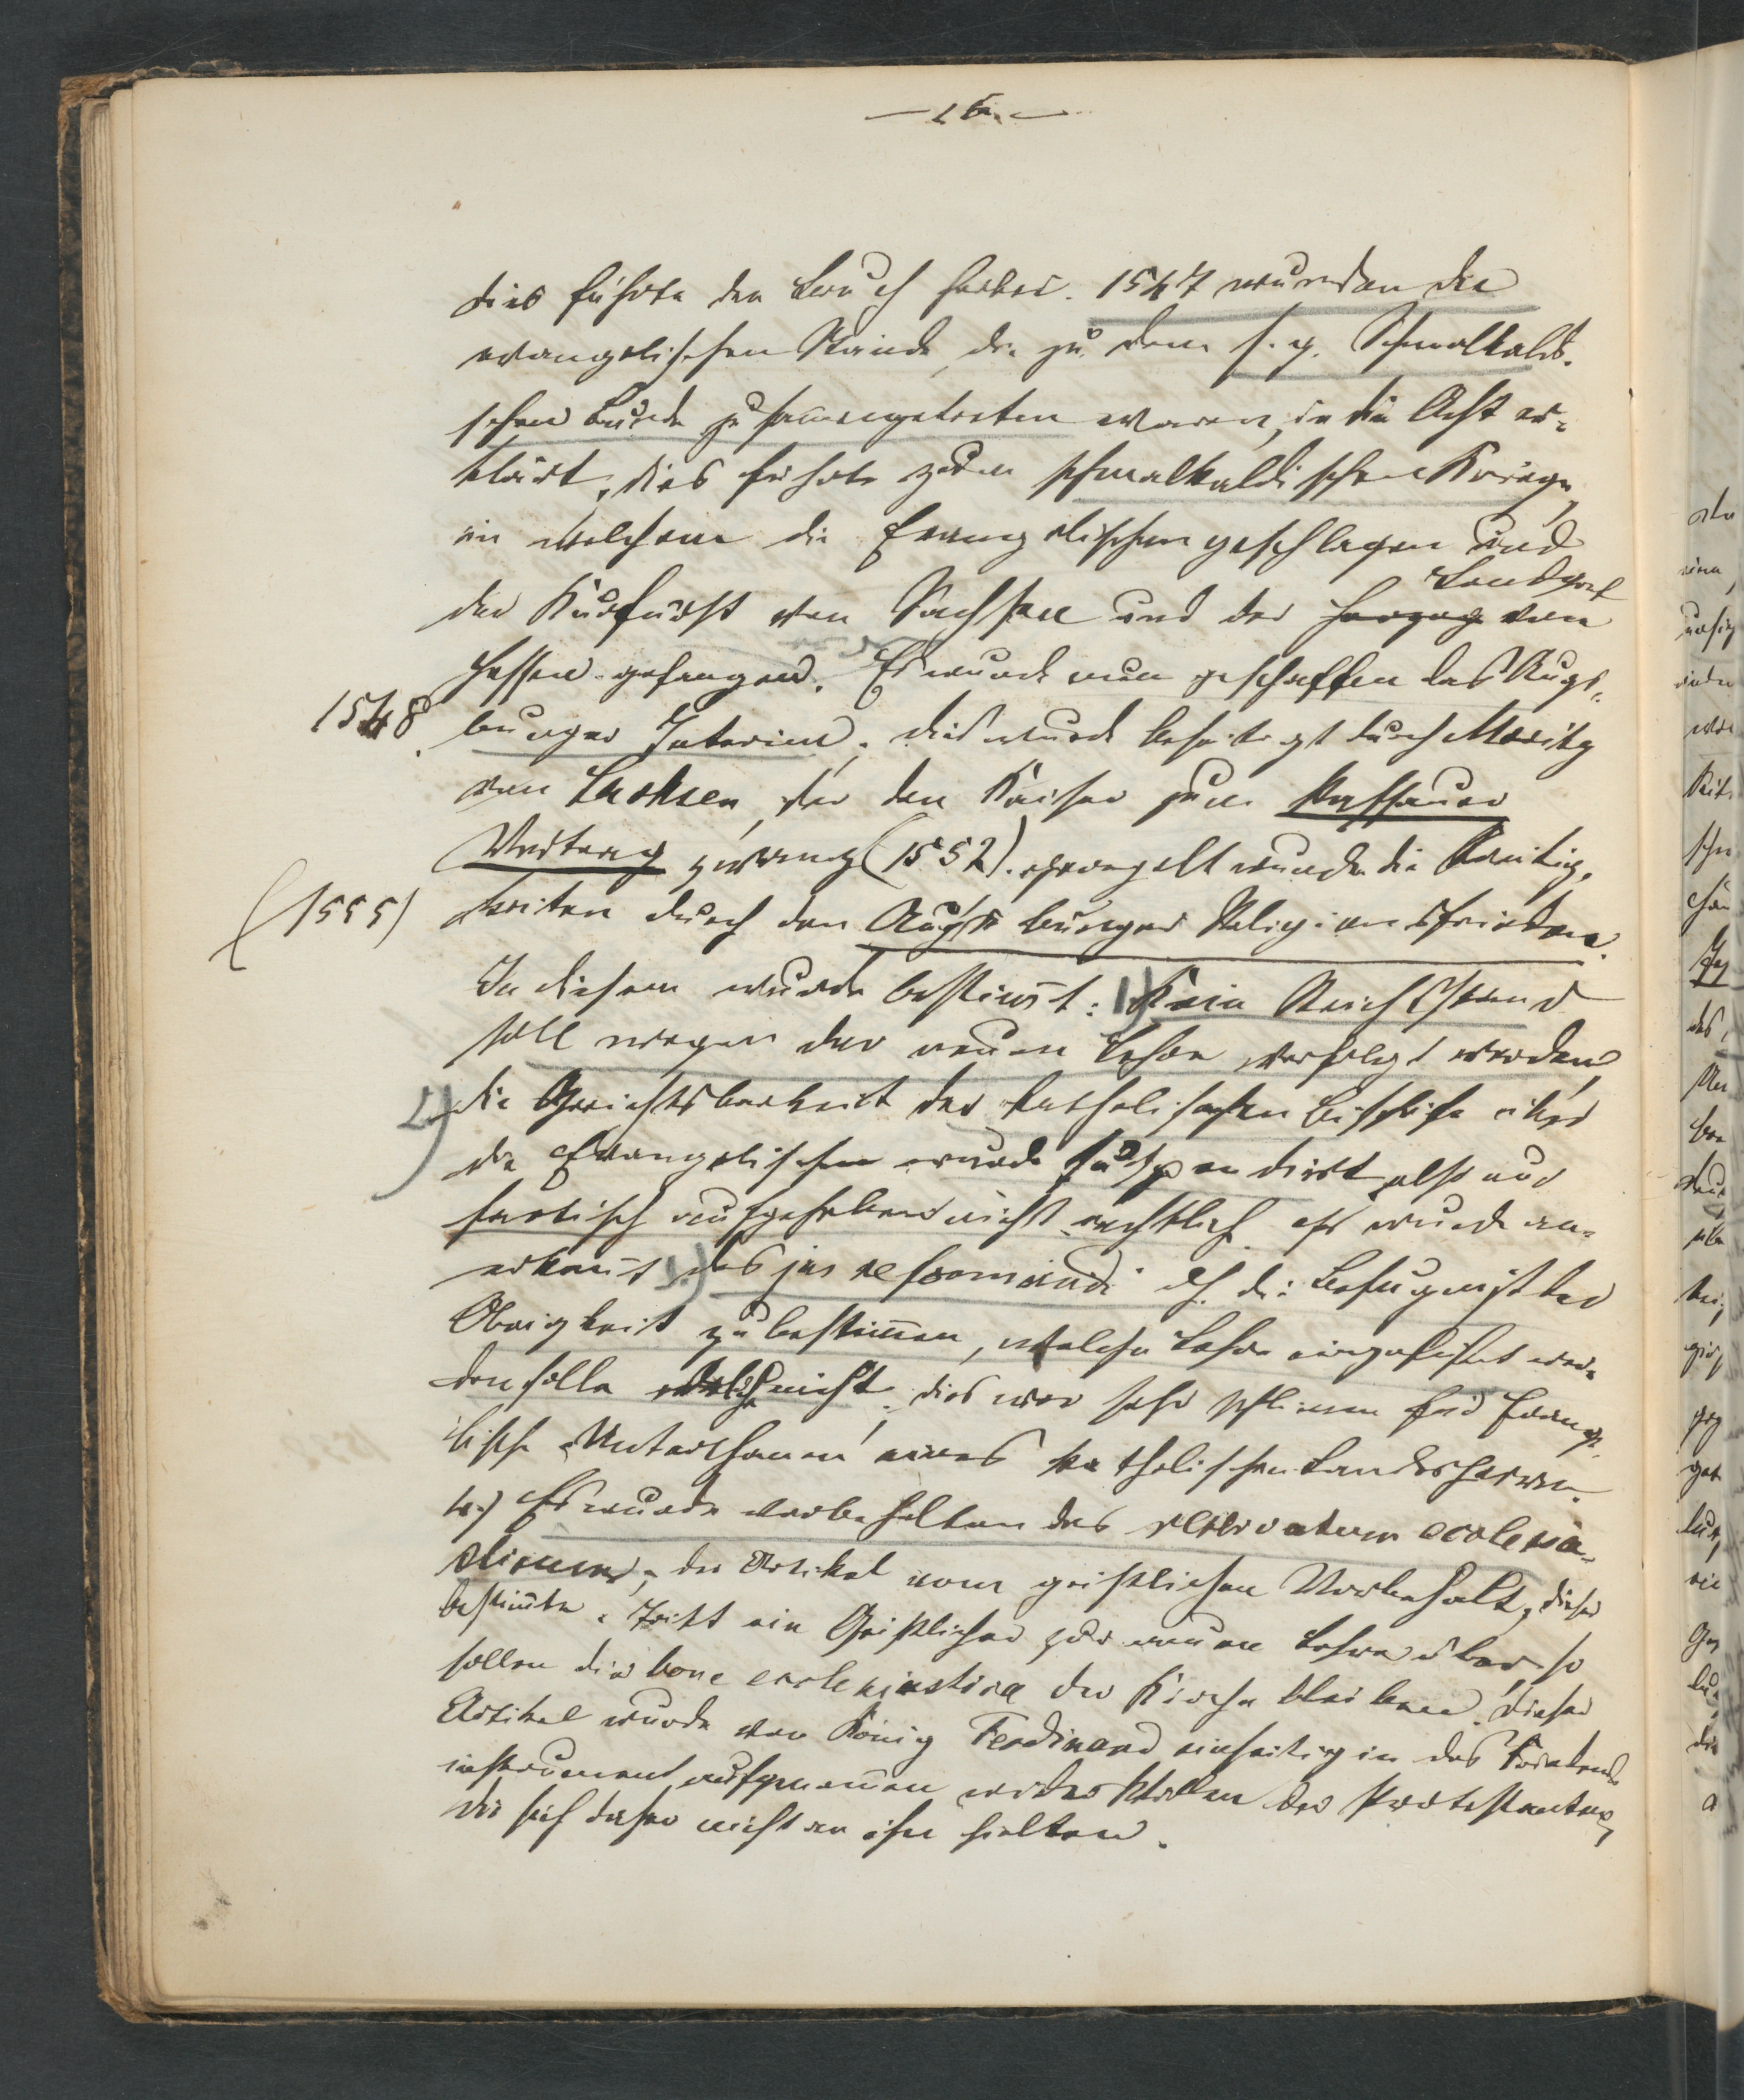 — 26. —
dies führte den Bruch herbei. 1547 wurden die
evangelischen Stände, die zu dem s. g. Schmalkaldi-
schen Bunde zusammengetreten waren, in die Acht er-
klärt, dies führte zudem schmalkaldischen Kriege,
in welchem die Evangelischen geschlagen und
Landgraf
der Kurfürst von Sachsen und der Herzog von
Hessen gefangen. Es wurde nun geschaffen das Augs-
1548. burger Interim, dies wurde beseitigt durch Moritz
von Sachsen, der den Kaiser zum Passauer
Vertrag zwang (1552). geregelt wurde die Streitig-
(1555) keiten durch den Augsburger Religionsfrieden.
In diesem wurde bestimt: 1) Kein Reichsstand
soll wegen der neuen Lehre verfolgt werden,
2) die Gerichtsbarkeit der katholischen Bischöfe über
die Evangelischen wurde suspendirt also nur
factisch aufgehoben nicht rechtlich es wurde an-
erkannt 3.) das jus reformandi d. h. die Befugniß der
Obrigkeit zu bestimen, welche Lehre eingeführt wer-
den solle welche nicht, dies war sehr schlimm für Evange-
lische Unterthanen eines katholischen Landesherren.
4.) Es wurde vorbehalten das reservatum ecclesia-
sticum, der Artikel vom geistlichen Vorbehalt, dieser
bestimte: Tritt ein Geistlicher zur neuen Lehre über, so
sollen die bona ecclesiastica der Kirche bleiben. Dieser
Artikel wurde von König Ferdinand einseitig in das Friedens-
instrument aufgenomen wider Willen der Protestanten,
die sich daher nicht an ihn hielten.